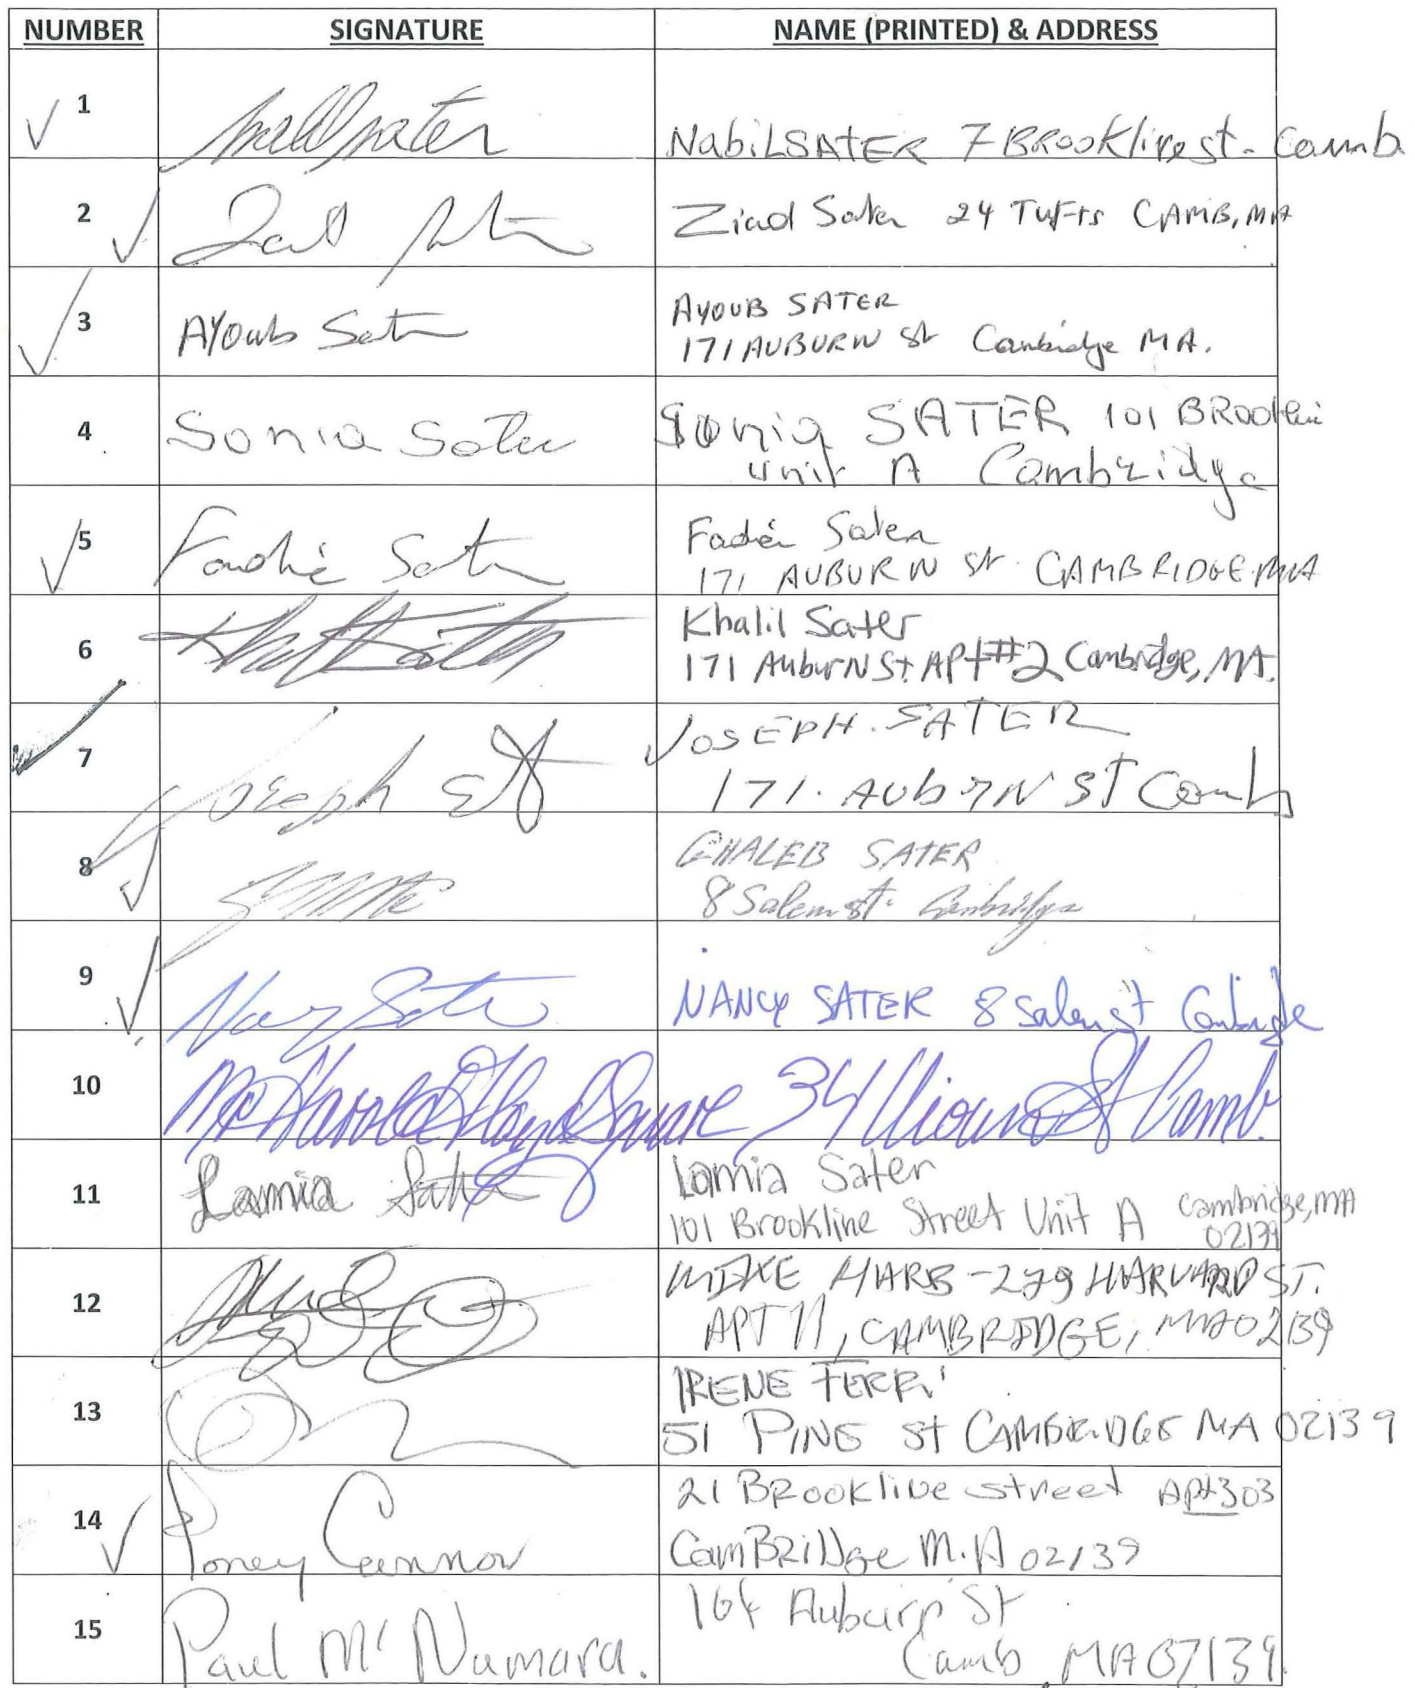 NUMBER SIGNATURE NAME (PRINTED) & ADDRESS
1 NabiLSATER 7 BROOKline st. Camb
2 Ziad Sater 24 TUFTS CAMB, MA
AYOUB SATER
3 AYoub Sater
171 AUBURN St Cambridge MA.
4 Sonia Sater Sonia SATER 101 BRookline
unit A Cambridge
5 Fadie Sater Fadie Sater
171 AUBURN St. CAMBRIDGE MA
Khalil Sater
6
171 AuburN St. APt #2 Cambridge, MA.
JOSEPH. SATER
7 Joseph
171. AuburN ST Camb
GHALEB SATER
8
8 Salem st. Cambridge
9 Nancy Sater NANCY SATER 8 Salem st Cambridge
10 Mr Harold Square 34 St Camb.
11 Lamia Sater Lamia Sater
101 Brookline Street Unit A Cambridge, MA
02139
MIKE HARB - 279 HARVARD ST.
12
APT 11, CAMBRIDGE, MA 02139
IRENE FERRI
13
51 PINE St CAMBRIDGE MA 02139
21 BRookline street Apt 303
14 Connor
CamBRiDge M.A 02139
15 Paul Mc Namara. 164 Auburn St
Camb MA 02139.